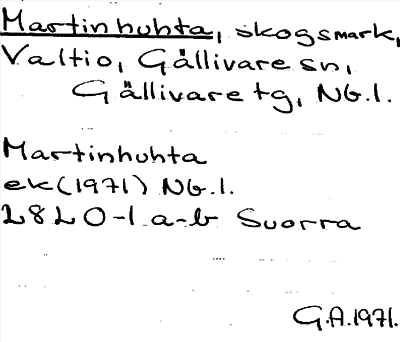 Martinhuhta, skogsmark,
Valtio, Gällivare sn,
Gällivare tg, Nb.l.
Martinhuhta
ek (1971) Nb.l.
28 L 0-1 a-b Suorra
G.A. 1971.